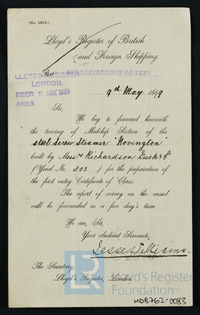 Lloyd's Register of British
and Foreign Shipping.
Port MIDDLESBROUGH-ON-TEES
LLOYD'S REGISTER
LONDON.
RECD 10 MAY 1899
9th May 1899
Sir,
We beg to forward herewith
the tracing of Midship Section of the
steel Screw Steamer "Rovington
built by Messrs Richardson Duck & Co
(Yard No. ) for the preparation of
the first entry Certificate of Class.
The report of entry on the vessel
will be forwarded in a few day's time.
We are, Sir,
Your obedient Servants,
Jesse Williams.
The Secretary,
Lloyd's Register, London.
Lloyd's Register
Foundation
WDB762-0083